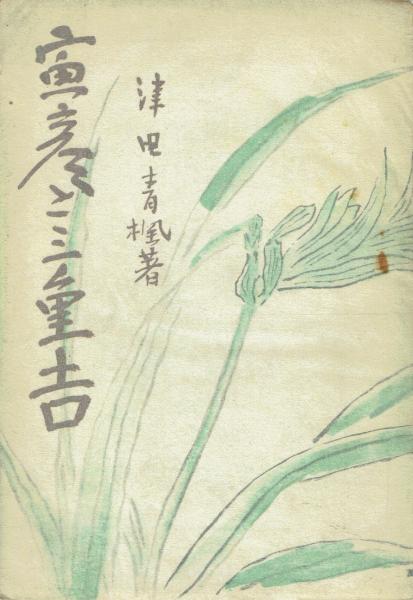 寅彦と三重吉
津田青楓著